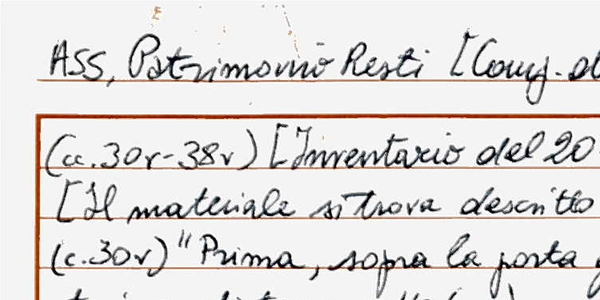 ASS, Patrimonio Resti [Cong. d
(cc.30r-38v) [Inventario del 20
[Il materiale si trova descritto
(c.30v) "Prima, sopra la porta